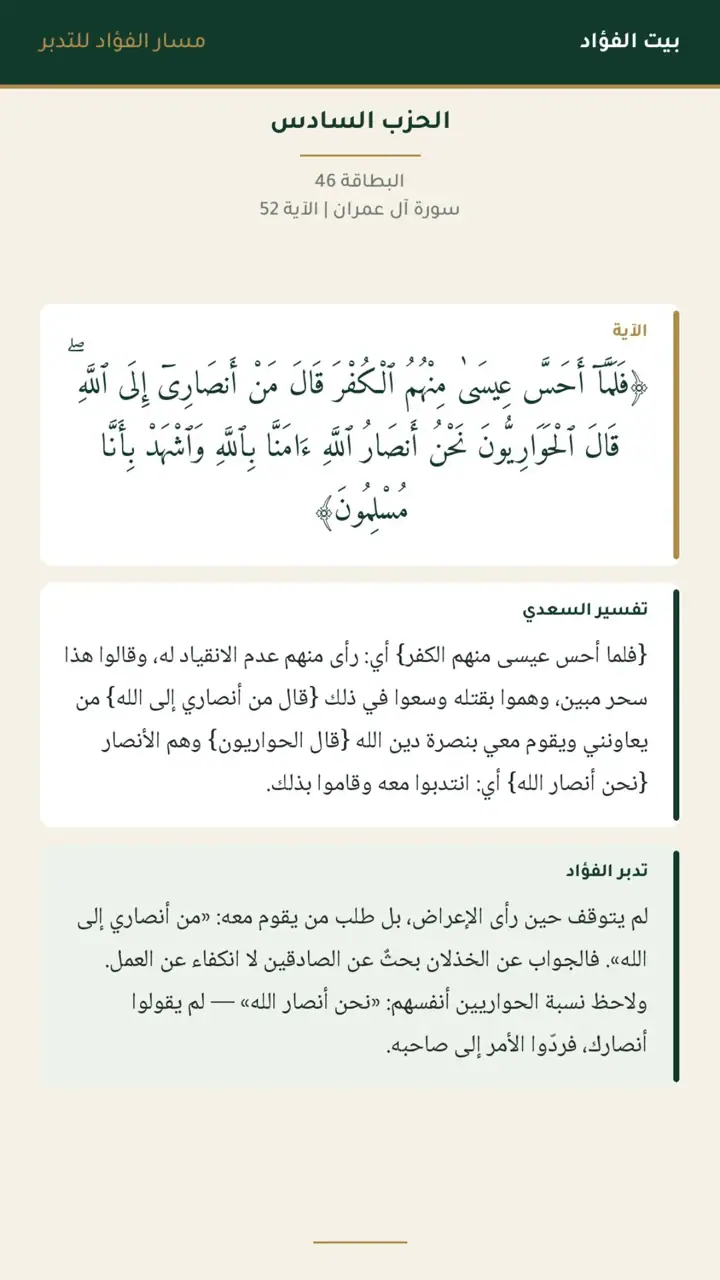 بيت الفؤاد
مسار الفؤاد للتدبر
الحزب السادس
البطاقة 46
سورة آل عمران | الآية 52
الآية
﴿فَلَمَّآ أَحَسَّ عِيسَىٰ مِنْهُمُ ٱلْكُفْرَ قَالَ مَنْ أَنصَارِىٓ إِلَى ٱللَّهِ ۖ
قَالَ ٱلْحَوَارِيُّونَ نَحْنُ أَنصَارُ ٱللَّهِ ءَامَنَّا بِٱللَّهِ وَٱشْهَدْ بِأَنَّا
مُسْلِمُونَ﴾
تفسير السعدي
{فلما أحس عيسى منهم الكفر} أي: رأى منهم عدم الانقياد له، وقالوا هذا
سحر مبين، وهموا بقتله وسعوا في ذلك {قال من أنصاري إلى الله} من
يعاونني ويقوم معي بنصرة دين الله {قال الحواريون} وهم الأنصار
{نحن أنصار الله} أي: انتدبوا معه وقاموا بذلك.
تدبر الفؤاد
لم يتوقف حين رأى الإعراض، بل طلب من يقوم معه: «من أنصاري إلى
الله». فالجواب عن الخذلان بحثٌ عن الصادقين لا انكفاء عن العمل.
ولاحظ نسبة الحواريين أنفسهم: «نحن أنصار الله» — لم يقولوا
أنصارك، فردّوا الأمر إلى صاحبه.